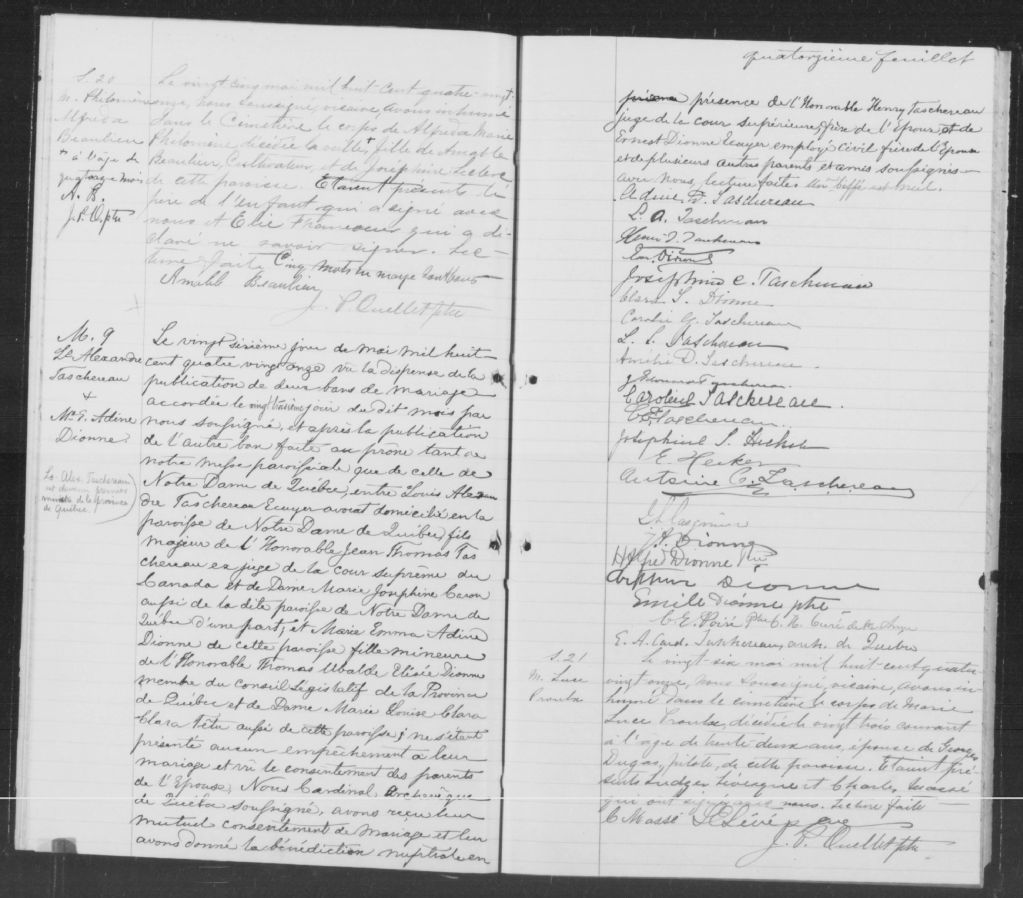 S. 20
M. Philomène
Alfréda
Beaulieu
+ à l'âge de
quatorze mois
A. B.
J. P. O. ptre
Le vingt cinq mai mil huit cent quatre-vingt
onze, nous soussigné, vicaire, avons inhumé
dans le Cimetière le corps de Alfréda Marie
Philomène, décédée la veille + fille de Amable
Beaulieu, Cultivateur, et de Joséphine Leclerc
de cette paroisse. Etaient présents le
père de l'enfant qui a signé avec
nous et Elie Francoeur qui a dé-
claré ne savoir signer. Lec-
ture faite. Cinq mots en marge
Amable Beaulieu
J. P. Ouellet ptre
M. 9
Ls Alexandre
Taschereau
+
Me E. Adine
Dionne
Ls-Alex. Taschereau
est devenu premier
ministre de la province
de Québec.
Le vingt sixième jour de mai mil huit
cent quatre vingt onze vu la dispense de la
publication de deux bans de mariage
accordée le vingt troisième jour du dit mois par
nous soussigné, et après la publication
de l'autre ban faite au prône tant de
notre messe paroissiale que de celle de
Notre Dame de Québec, entre Louis Alexan
dre Taschereau Ecuyer avocat domicilié en la
paroisse de Notre Dame de Québec, fils
majeur de l'Honorable Jean Thomas Tas
chereau ex juge de la cour suprême du
Canada et de Dame Marie Josephine Caron
aussi de la dite paroisse de Notre Dame de
Québec d'une part; et Marie Emma Adine
Dionne de cette paroisse fille mineure
de l'Honorable Thomas Ubalde Elisée Dionne
membre du Conseil Législatif de la Province
de Québec et de Dame Marie Louise Clara
Clara Têtu aussi de cette paroisse; ne s'étant
présenté aucun empêchement à leur
mariage et vu le consentement des parents
de l'Epouse, Nous Cardinal Archevêque
de Québec soussigné, avons reçu leur
mutuel consentement de mariage et leur
avons donné la bénédiction nuptiale en
quatorzième feuillet
présence de l'Honorable Henry Taschereau
juge de la cour supérieure, frère de l'Epoux et de
Ernest Dionne Ecuyer employé Civil frère de l'Epouse
et de plusieurs autres parents et amis soussignés
avec nous, lecture faite. Un biffé est nul.
Adine D. Taschereau
L. A. Taschereau
Henri T. Taschereau
Joséphine C. Taschereau
Clara T. Dionne
Caroline G. Taschereau
L. E. Taschereau
Amélie D. Taschereau
Taschereau
Caroline Taschereau.
Taschereau.
Joséphine S. Hecker
E. Hecker
Antoine C. Taschereau
J. A. Dionne
H. Alfred Dionne Ptre
Arthur Dionne
Emile Dionne ptre
C. E. Poiré Ptre C. H. Curé de Ste Anne
E. A. Card. Taschereau, arch. de Québec
S. 21
M. Luce
Proulx
Le vingt-six mai mil huit-cent quatre
vingt onze, nous soussigné, vicaire, avons in-
humé dans le cimetière le corps de Marie
Luce Proulx, décédée le vingt trois courant
à l'âge de trente deux ans, épouse de Georges
Dugas, pilote, de cette paroisse. Etaient pré-
sents Ludger Lévesque et Charles Massé
qui ont signé avec nous. Lecture faite
C Massé L Lévesque
J. P. Ouellet ptre